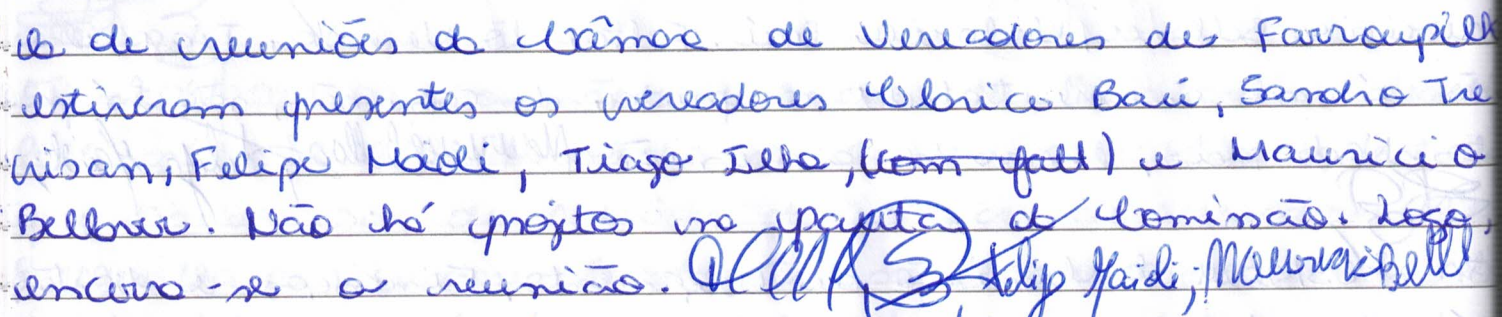 la de reuniões da Câmara de Vereadores de Farroupilh
estiveram presentes os vereadores Clarice Baú, Sandro Tre
visan, Felipe Maioli, Tiago Ilha, (com fatt) e Mauricio
Bellaver. Não há projetos na pauta da Comissão. Logo,
encerra-se a reunião. Felip Maioli; Mauricio Bell